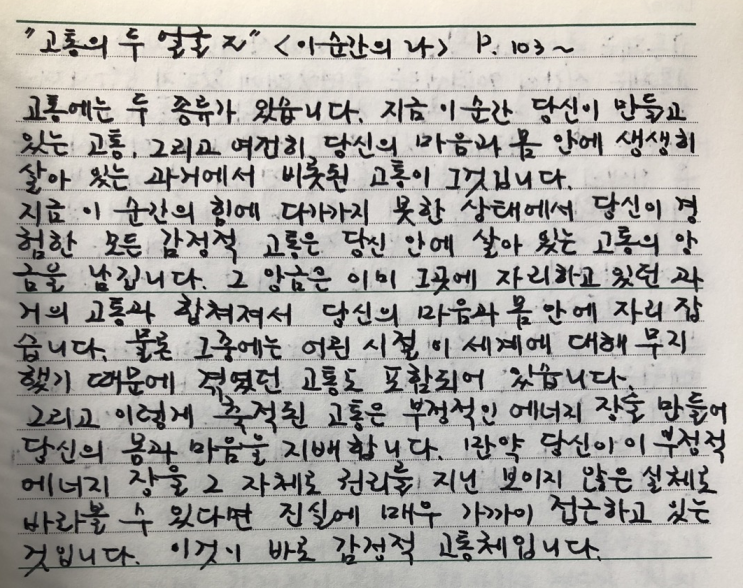 "고통의 두 얼굴 즈" <이 순간의 나> P. 103~
고통에는 두 종류가 있습니다. 지금 이 순간 당신이 만들고
있는 고통, 그리고 여전히 당신의 마음과 몸 안에 생생히
살아 있는 과거에서 비롯된 고통이 그것입니다.
지금 이 순간의 힘에 다가가지 못한 상태에서 당신이 경
험한 모든 감정적 고통은 당신 안에 살아 있는 고통의 앙
금을 남깁니다. 그 앙금은 이미 그곳에 자리하고 있던 과
거의 고통과 합쳐져서 당신의 마음과 몸 안에 자리 잡
습니다. 물론 그중에는 어린 시절 이 세계에 대해 무지
했기 때문에 겪었던 고통도 포함되어 있습니다.
그리고 이렇게 축적된 고통은 부정적인 에너지 장을 만들어
당신의 몸과 마음을 지배합니다. 만약 당신이 이 부정적
에너지 장을 그 자체로 권리를 지닌 보이지 않은 실체로
바라볼 수 있다면 진실에 매우 가까이 접근하고 있는
것입니다. 이것이 바로 감정적 고통체입니다.